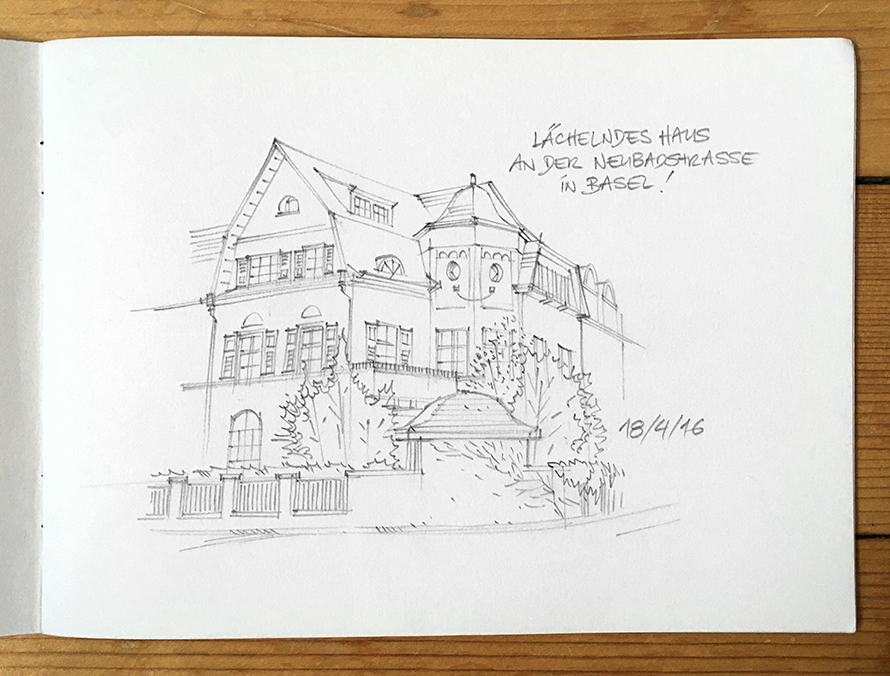 LÄCHELNDES HAUS
AN DER NEUBADSTRASSE
IN BASEL!
18/4/16